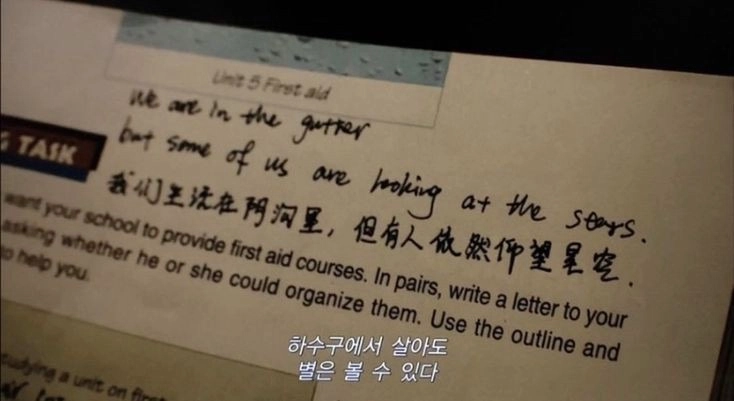 Unit 5 First aid
We are in the gutter
but some of us are looking at the stars.
TASK
我们生活在阴沟里，但有人依然仰望星空.
want your school to provide first aid courses. In pairs, write a letter to your
asking whether he or she could organize them. Use the outline and
to help you.
studying a unit on first
하수구에서 살아도
별은 볼 수 있다